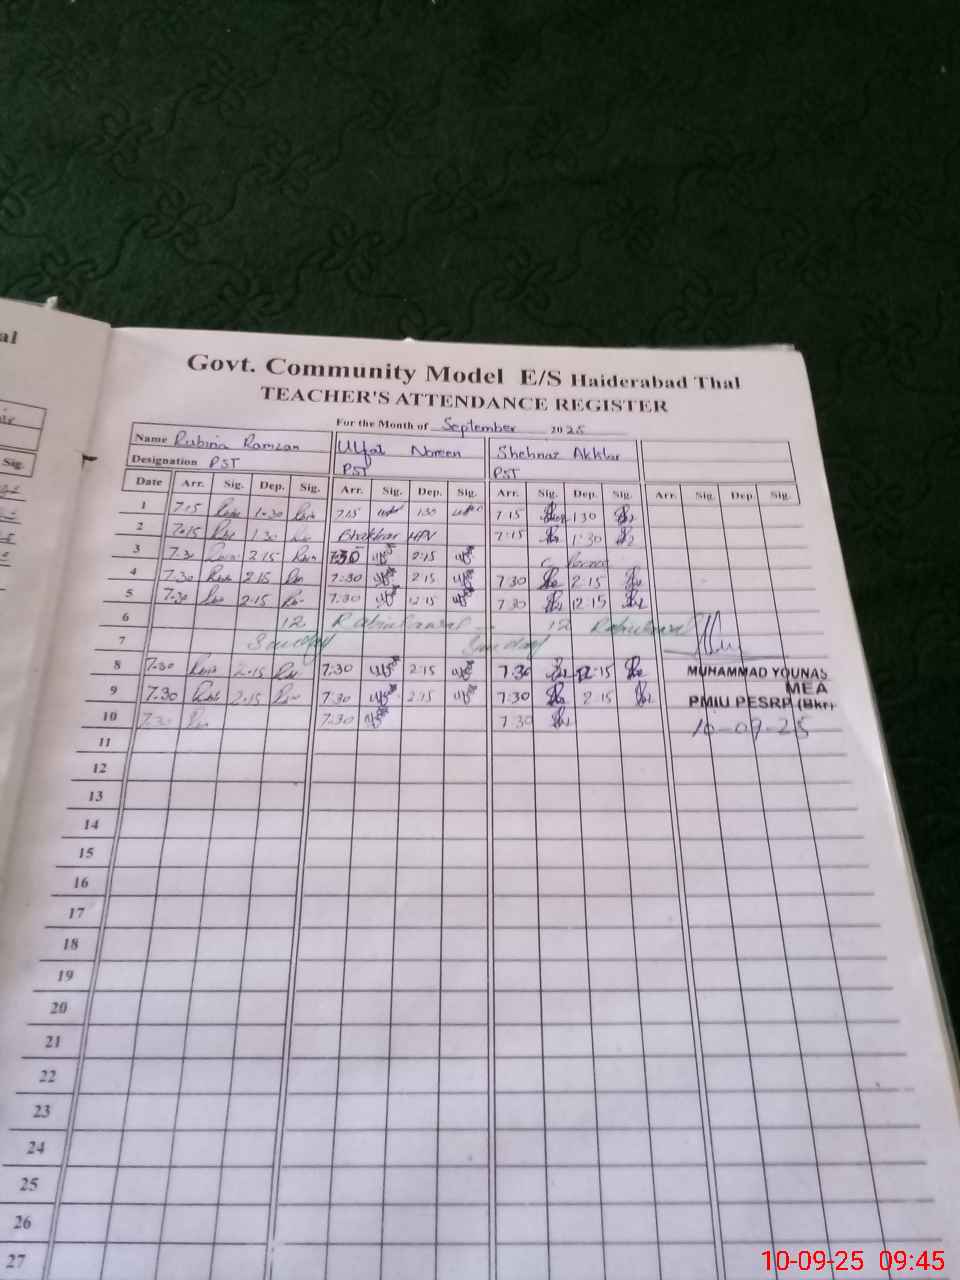 al
Sig.
Govt. Community Model E/S Haiderabad Thal
TEACHER'S ATTENDANCE REGISTER
For the Month of September 2025
Name Rubina Ramzan Ulfat Noreen Shehnaz Akhtar
Designation PST PST PST
Date Arr. Sig. Dep. Sig. Arr. Sig. Dep. Sig. Arr. Sig. Dep. Sig. Arr. Sig. Dep. Sig.
1 7.15 1.30 7.15 1.30 7.15 1.30
2 7.15 1.30 Bhakkar HPV 7:15 1:30
3 7.30 2.15 7.30 2:15
4 7.30 2.15 7:30 2:15 7.30 2:15
5 7.30 2.15 7.30 2:15 7.30 2:15
6 12 Rabiulawal 12 Rabiulawal
7 Sunday Sunday
8 7.30 2.15 7.30 2:15 7.30 2:15
MUHAMMAD YOUNAS
9 7.30 2.15 7.30 2:15 7.30 2:15
MEA
PMIU PESRP (Bkr)
10 7.30 7.30 7.30
10-09-25
11
12
13
14
15
16
17
18
19
20
21
22
23
24
25
26
27
10-09-25 09:45